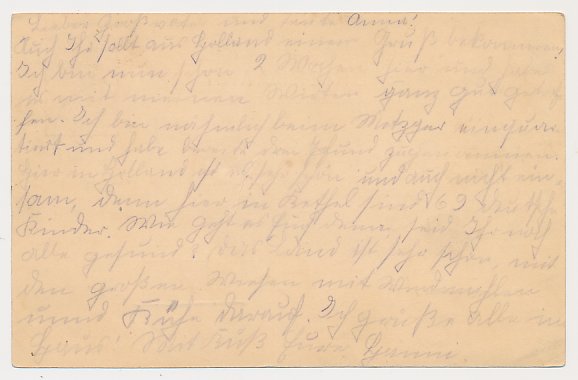 Lieber Großvater und Tante Anna!
Auch Ihr sollt aus Holland einen Gruß bekommen.
Ich bin nun schon 2 Wochen hier und habe
es mit meinen Wirten ganz gut getrof
fen. Ich bin nähmlich beim Metzger einquar
tiert und habe bereits drei Pfund zugenommen.
Hier in Holland ist es sehr schön und auch nicht ein-
sam, denn hier in sind 63 deutsche
Kinder. Wie geht es Euch denn, seid Ihr noch
alle gesund? Das Land ist sehr schön, mit
den großen Wiesen mit Windmühlen
unnd Kühe darauf. Ich grüße alle im
Haus! Mit Kuß Eure Hanni.